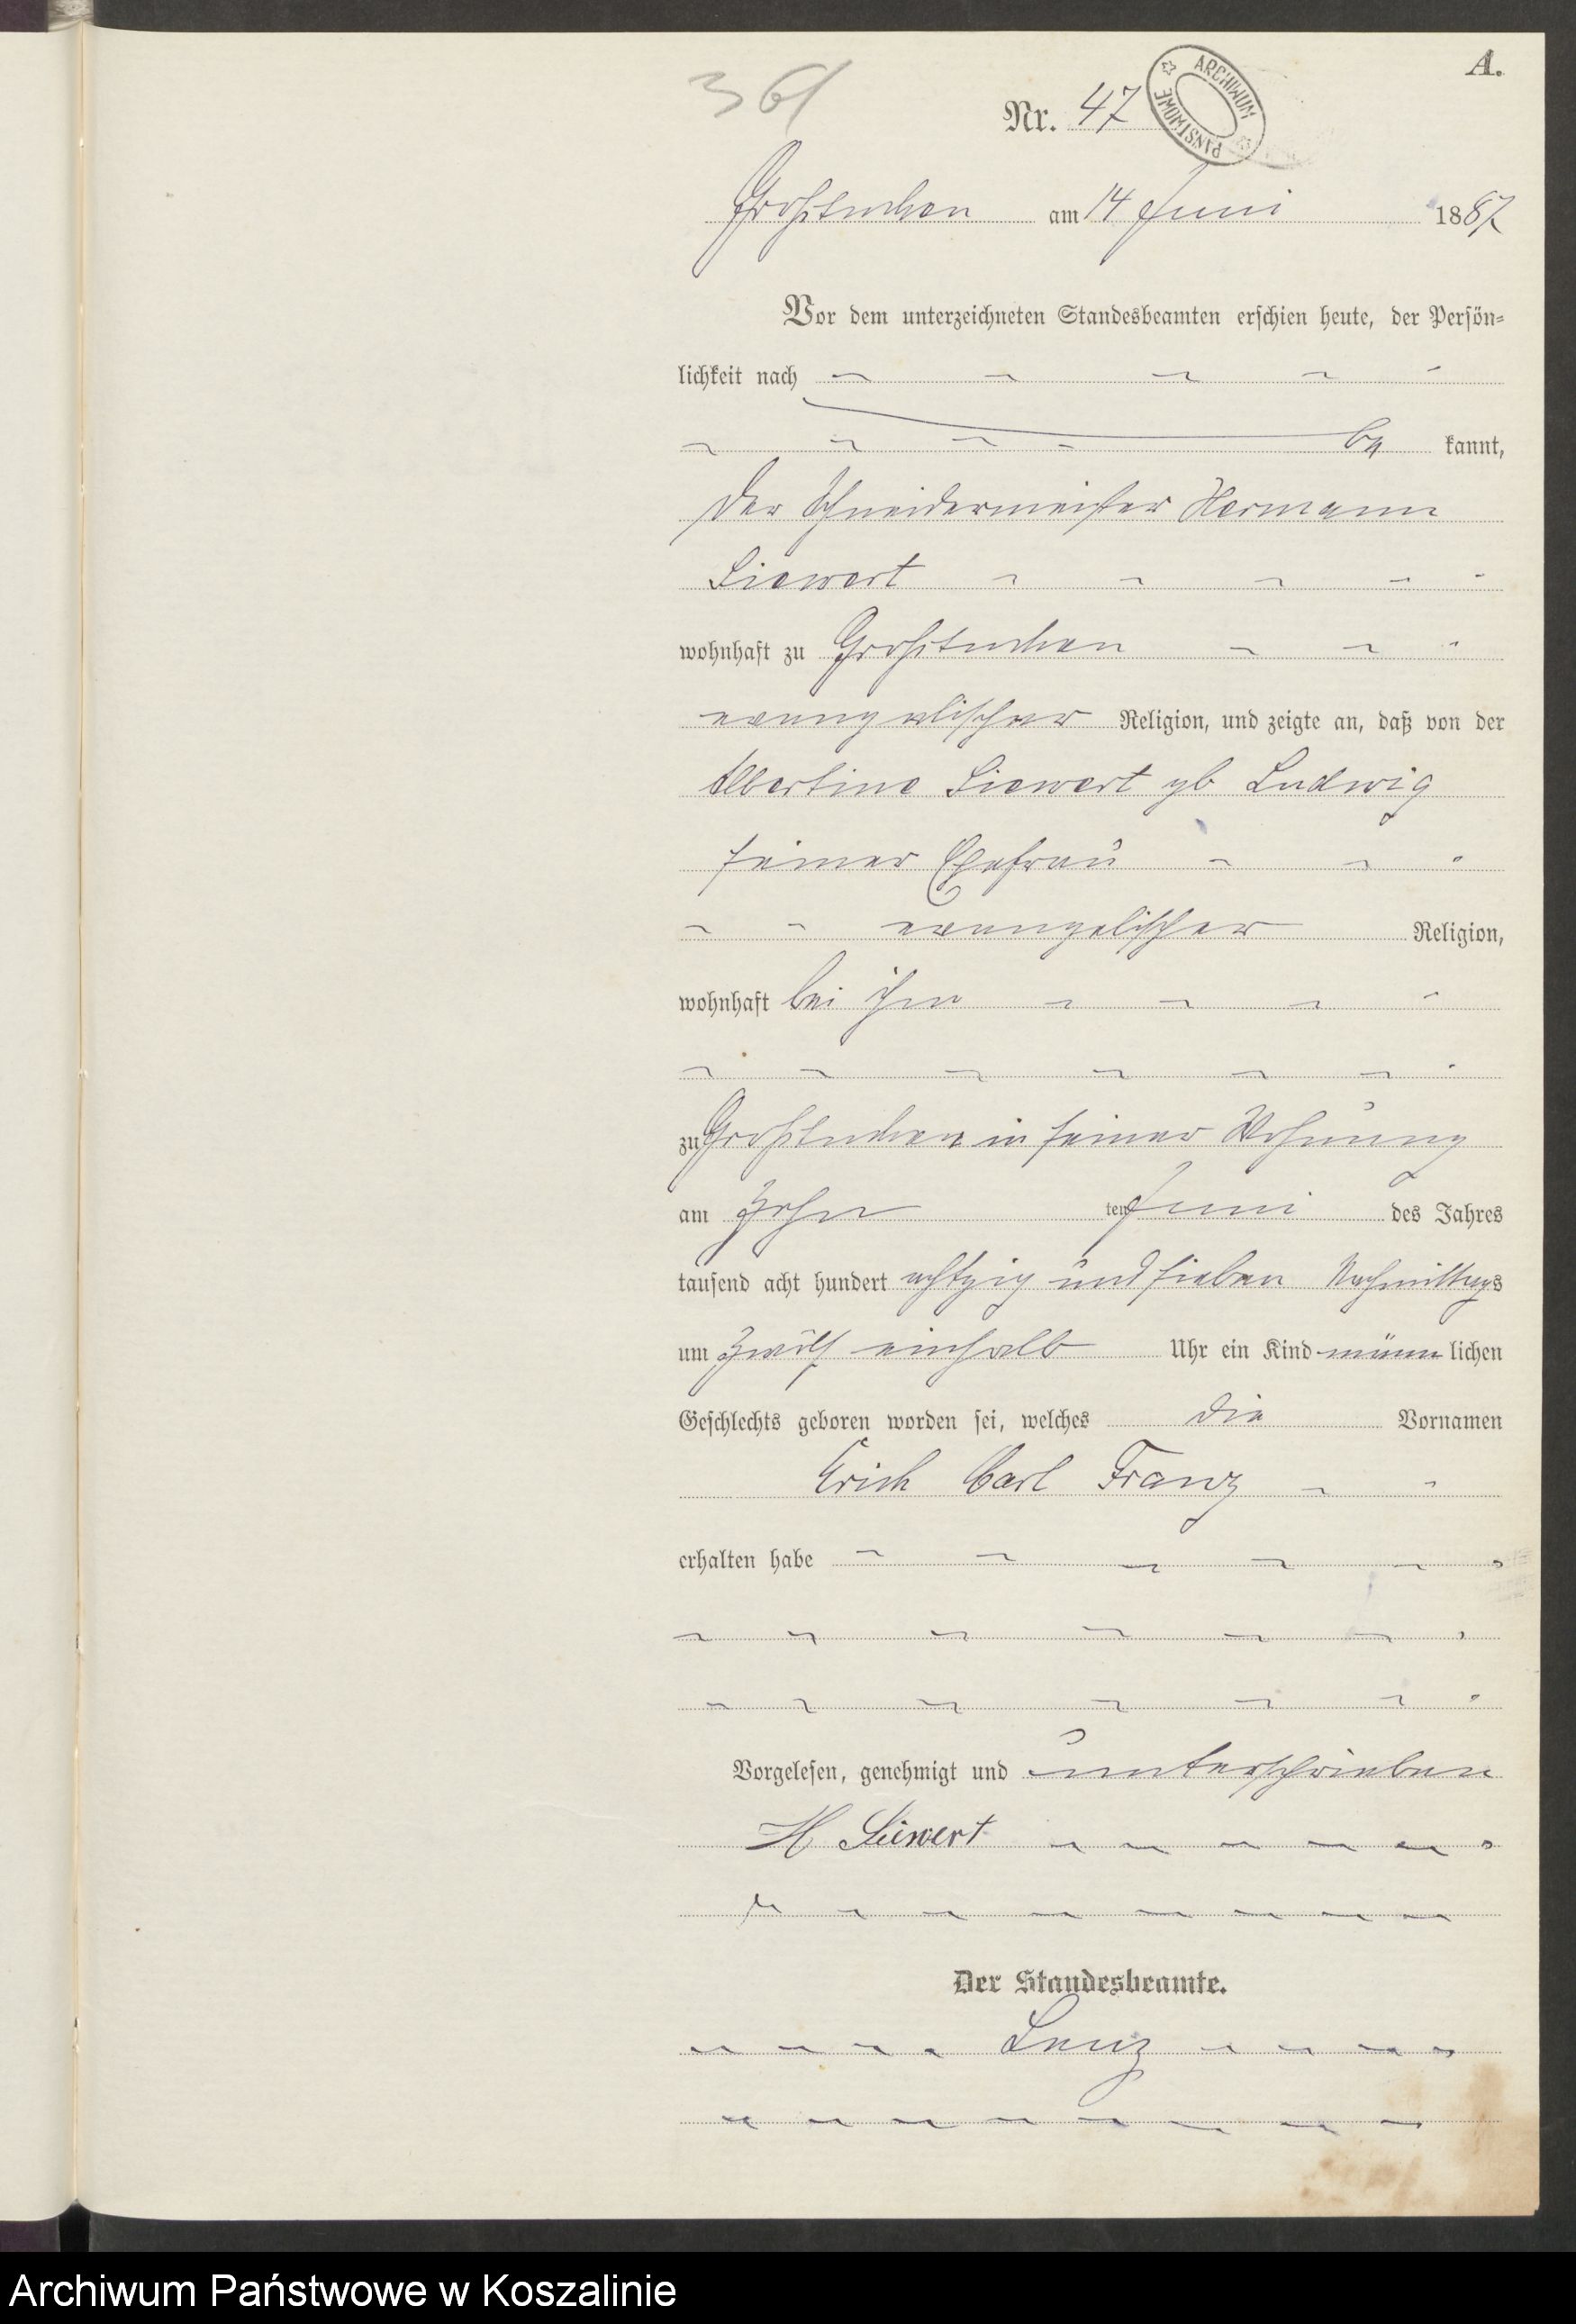 A.
361
Nr. 47
ARCHIWUM PAŃSTWOWE
Großtuchen am 14 Juni 1887
Vor dem unterzeichneten Standesbeamten erschien heute, der Persön-
lichkeit nach
be kannt,
der Schneidermeister Hermann
Siewert
wohnhaft zu Großtuchen
evangelischer Religion, und zeigte an, daß von der
Albertine Siewert gb Ludwig
seiner Ehefrau
evangelischer Religion,
wohnhaft bei ihm
zu Großtuchen in seiner Wohnung
am zehn ten Juni des Jahres
tausend acht hundert achtzig und sieben Nachmittags
um zwölf einhalb Uhr ein Kind männ lichen
Geschlechts geboren worden sei, welches die Vornamen
Erich Carl Franz
erhalten habe
Vorgelesen, genehmigt und unterschrieben
H Siewert
Der Standesbeamte.
Lenz
Archiwum Państwowe w Koszalinie